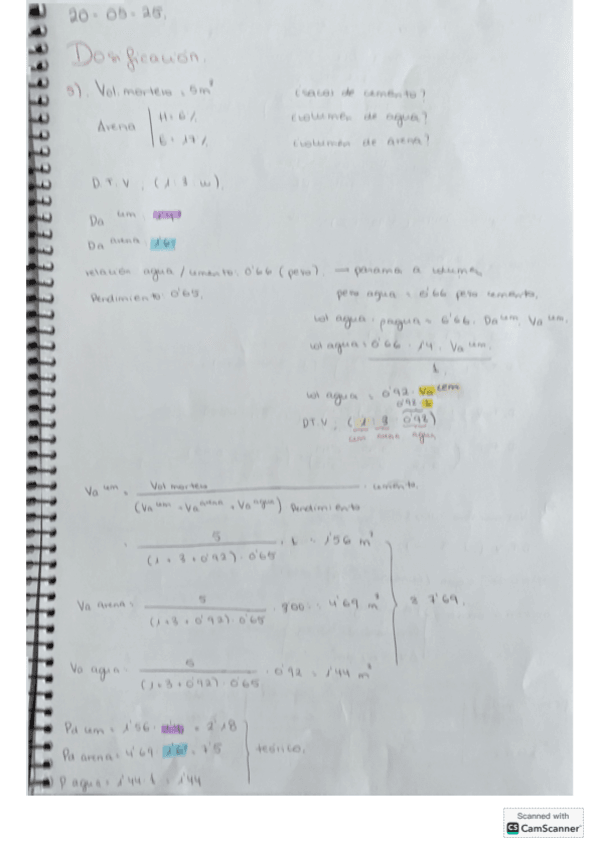 20-05-25.
Dosificación.
5). Vol. mortero: 5m³ ¿sacos de cemento?
Arena | H: 6% ¿volumen de agua?
E: 17% ¿volumen de arena?
D.T.V. (1:3:w).
Da cem:
Da arena: 1'61
relación agua/cemento: 0'66 (peso). → pasarla a volumen
Rendimiento: 0'65. peso agua = 0'66 peso cemento.
vol agua · ρagua = 0'66 · Da cem · Va cem.
vol agua = 0'66 · 1'4 · Va cem.
1.
vol agua = 0'92 · Va cem
0'92 1
D.T.V. (1 : 3 : 0'92)
cem arena agua
Va cem = Vol mortero · cemento.
(Va cem + Va arena + Va agua) Rendimiento
= 5 · 1 = 1'56 m³
(1+3+0'92) · 0'65
Va arena = 5 = 4'69 m³ 7'69.
(1+3+0'92) · 0'65
Va agua = 5 · 0'92 = 1'44 m³
(1+3+0'92) · 0'65
Pa cem = 1'56 · = 2'18
Pa arena = 4'69 · 1'61 = 7'5 teórico.
P agua = 1'44 · 1 = 1'44
Scanned with
CS CamScanner